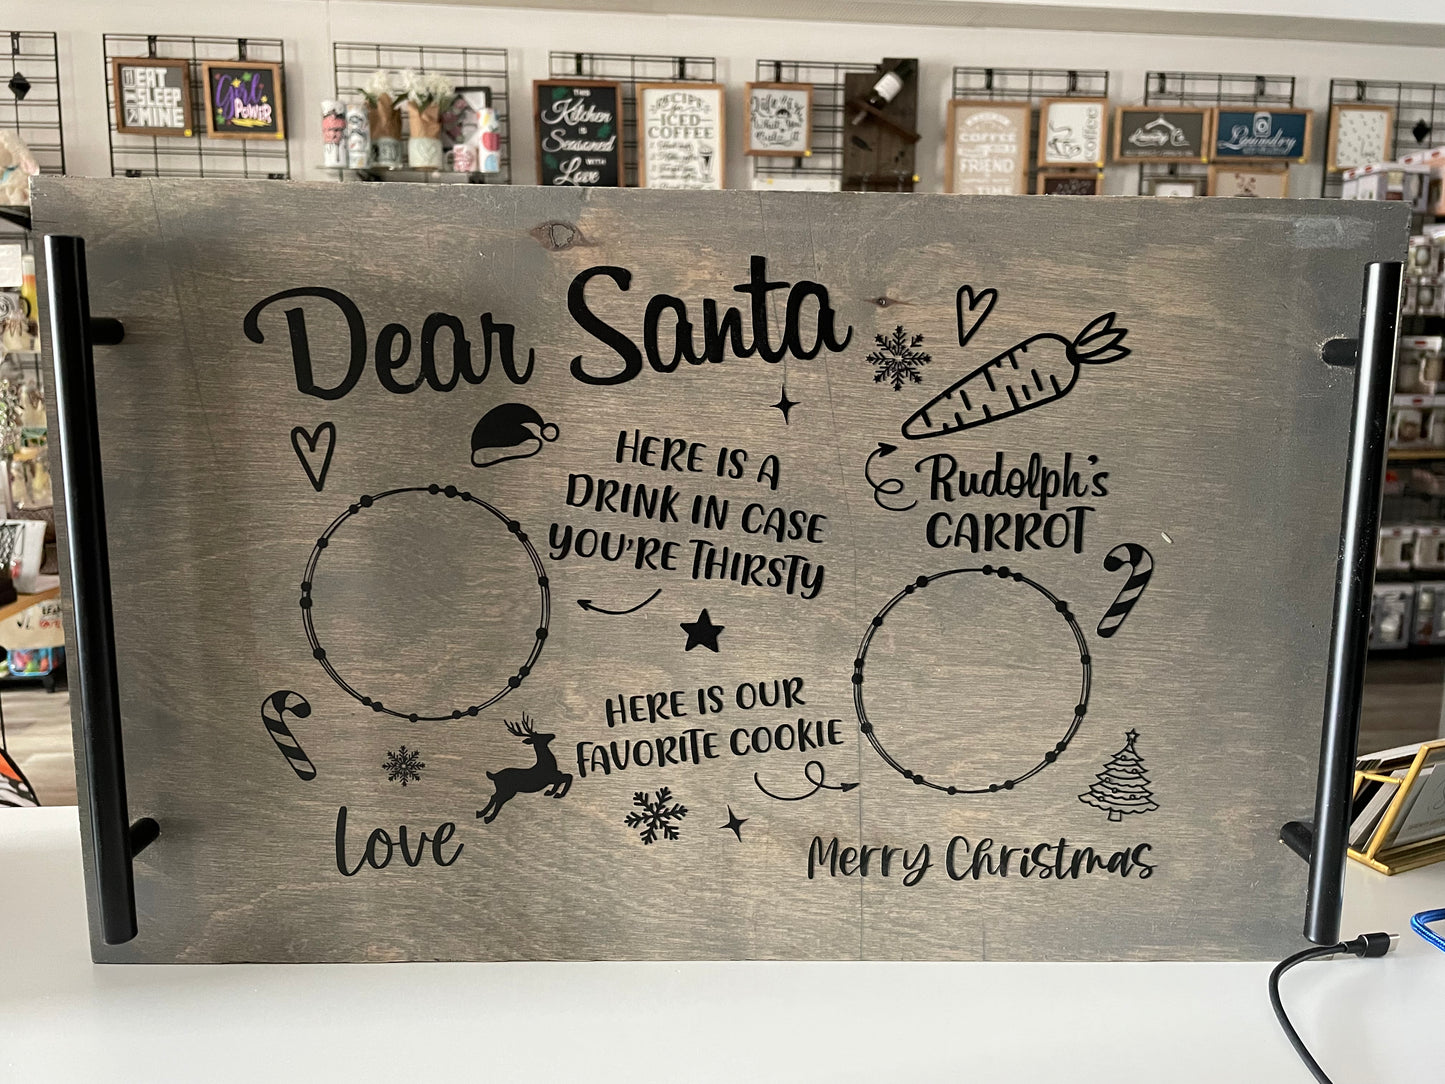 EAT
SLEEP
MINE
Girl
POWER
THIS
Kitchen
IS
Seasoned
WITH
Love
RECIPE
for
ICED
COFFEE
COFFEE
FRIEND
coffee
Laundry Co.
Laundry
Dear Santa
HERE IS A
DRINK IN CASE
YOU'RE THIRSTY
Rudolph's
CARROT
HERE IS OUR
FAVORITE COOKIE
Love
Merry Christmas